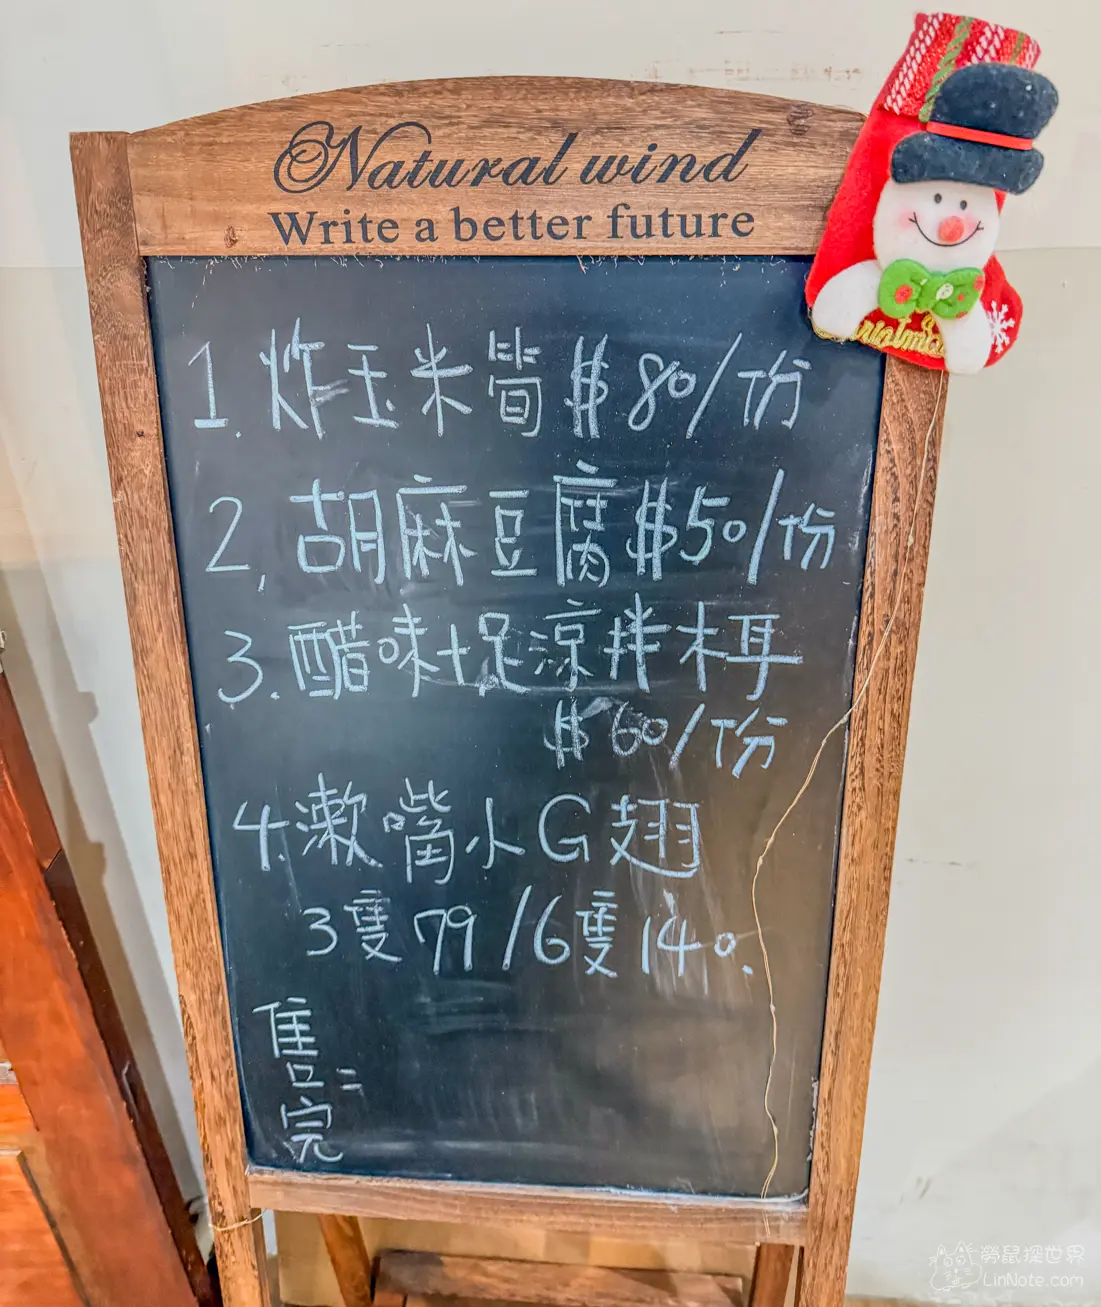 Natural wind
Write a better future
1. 炸玉米筍 $80/份
2. 胡麻豆腐 $50/份
3. 醋味十足涼拌木耳
$60/份
4. 漱嘴小G翅
3隻79/6隻140.
售完=
勞鼠探世界
LinNote.com